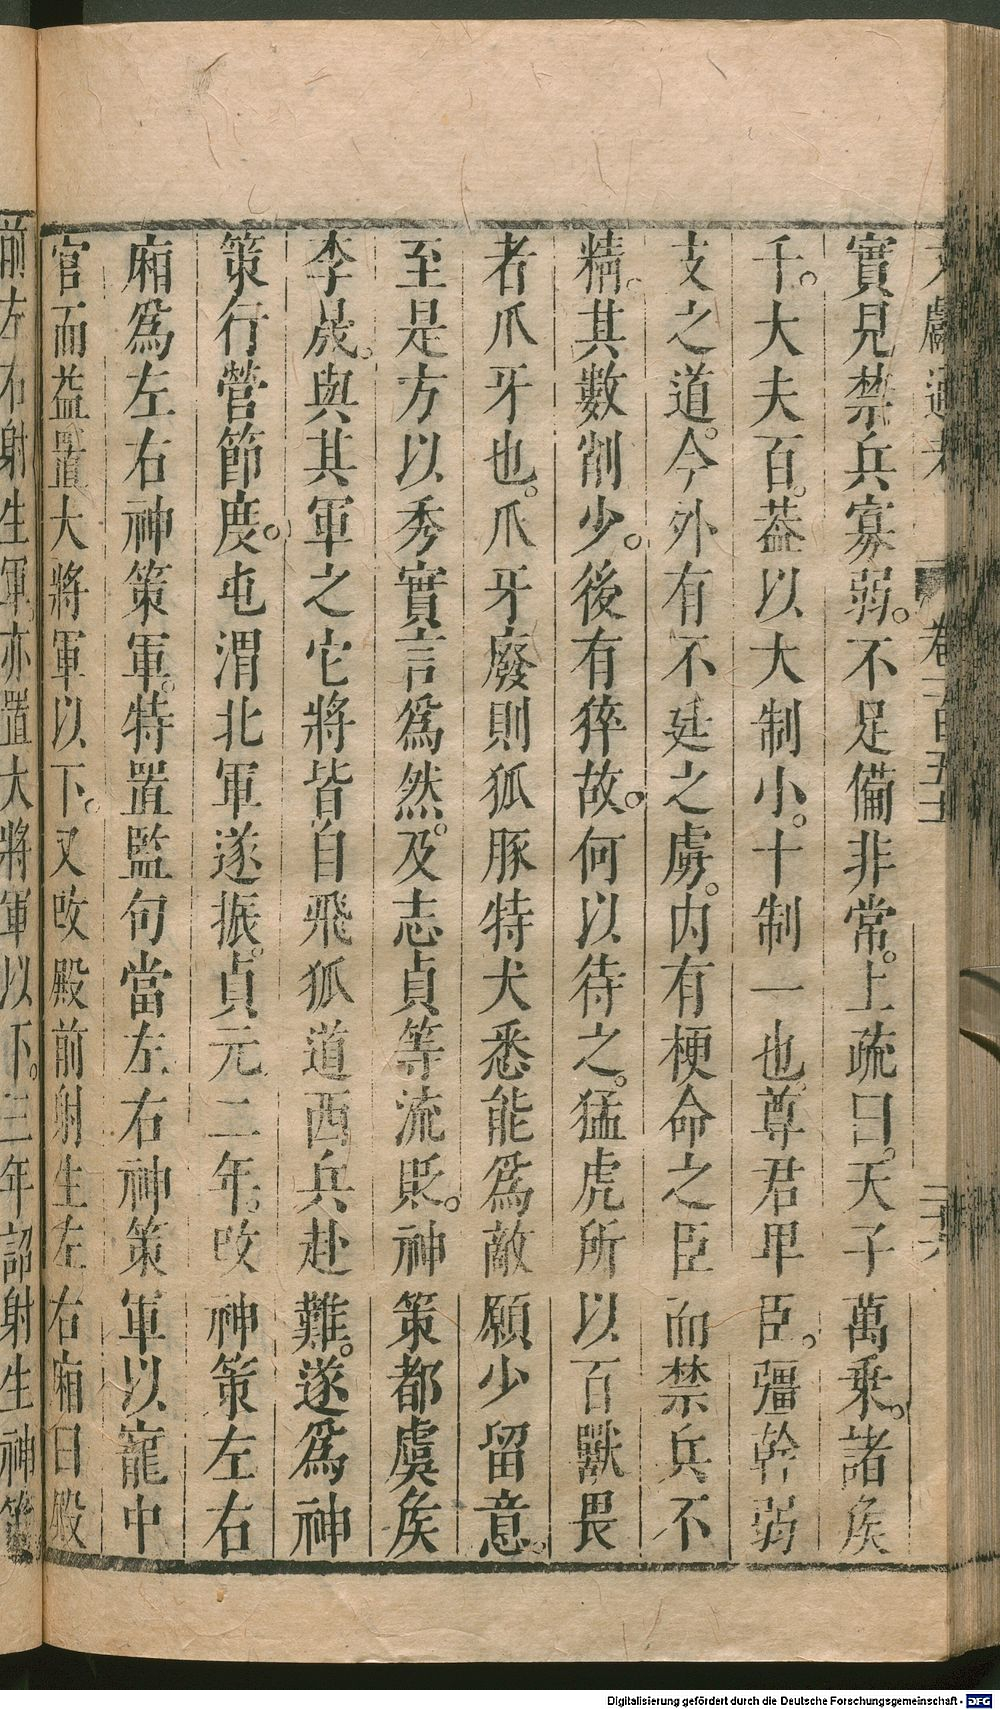 文獻通考 卷一百五十一 二十六
實見禁兵寡弱。不足備非常。上疏曰。天子萬乘。諸侯
千。大夫百。葢以大制小。十制一也。尊君卑臣。彊幹弱
支之道。今外有不廷之虜。內有梗命之臣而禁兵不
精。其數削少。後有猝故。何以待之。猛虎所以百獸畏
者爪牙也。爪牙廢則狐豚特犬悉能爲敵願少留意。
至是方以秀實言爲然。及志貞等流貶。神策都虞侯
李晟。與其軍之它將皆自飛狐道西兵赴難。遂爲神
策行營節度。屯渭北軍遂振。貞元二年。改神策左右
廂爲左右神策軍。特置監句當左右神策軍以寵中
官而益置大將軍以下。又改殿前射生左右廂曰殿
前左右射生軍亦置大將軍以下。三年詔射生神策
Digitalisierung gefördert durch die Deutsche Forschungsgemeinschaft - DFG